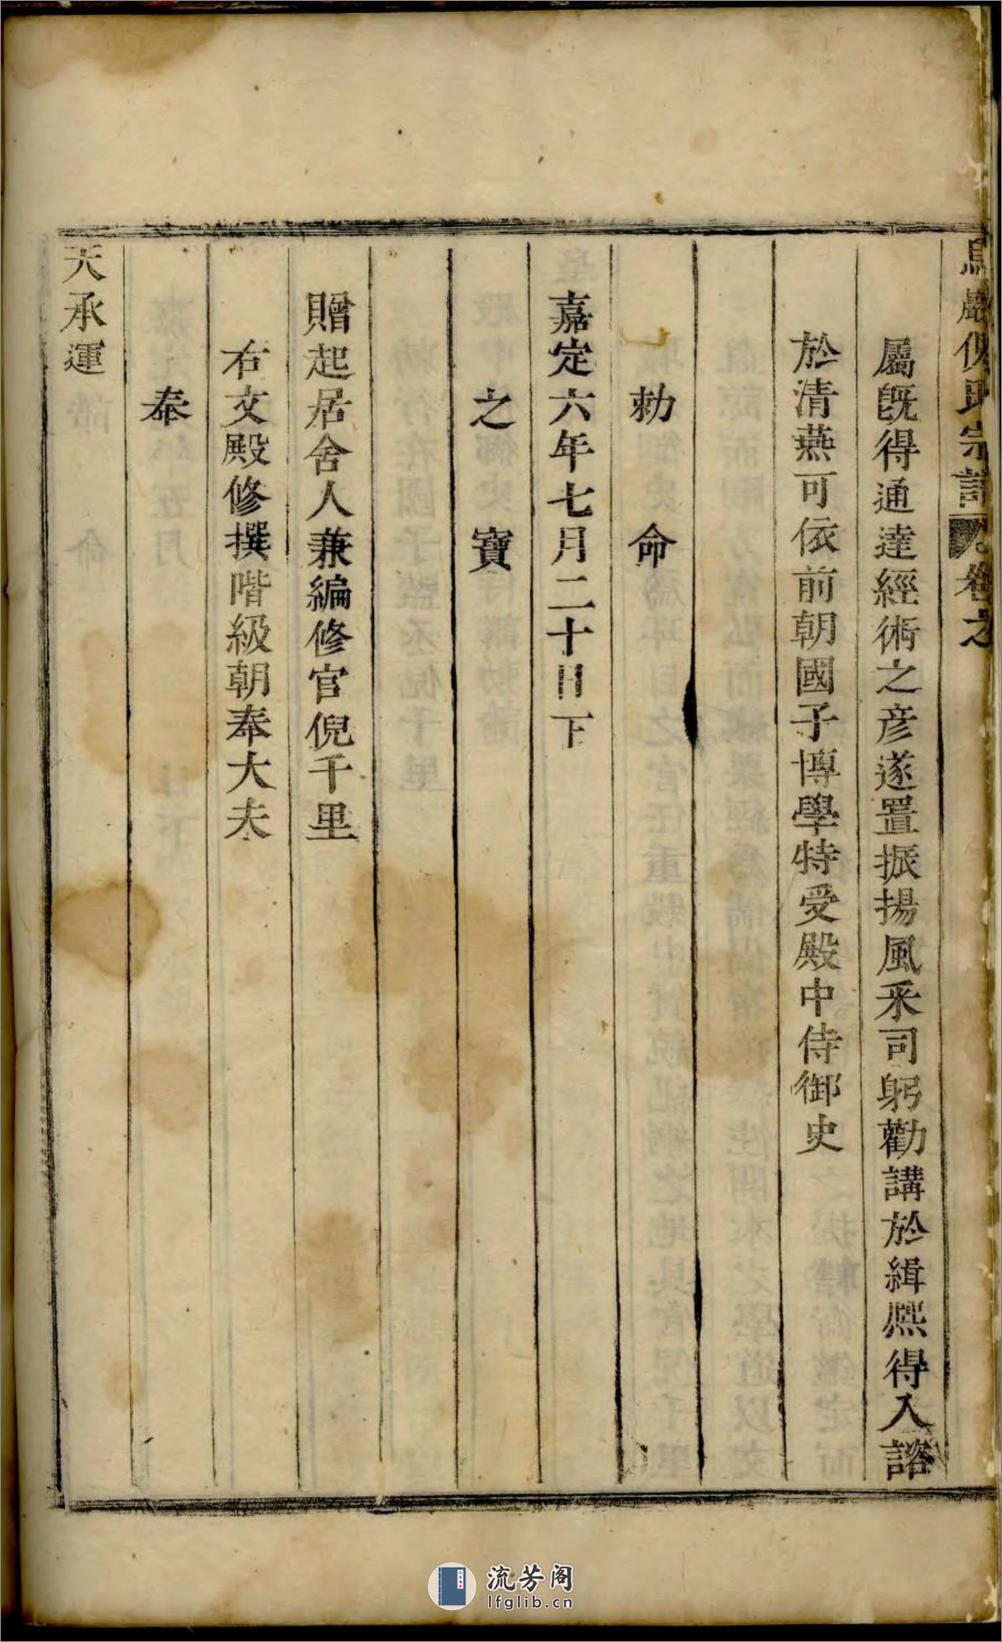 倪氏宗譜 卷之
屬既得通達經術之彦遂置振揚風采司躬勸講於緝熈得入諮
於清燕可依前朝國子博學特受殿中侍御史
勅命
嘉定六年七月二十日下
之寶
贈起居舍人兼編修官倪千里
右文殿修撰階級朝奉大夫
奉
天承運
流芳阁
lfglib.cn